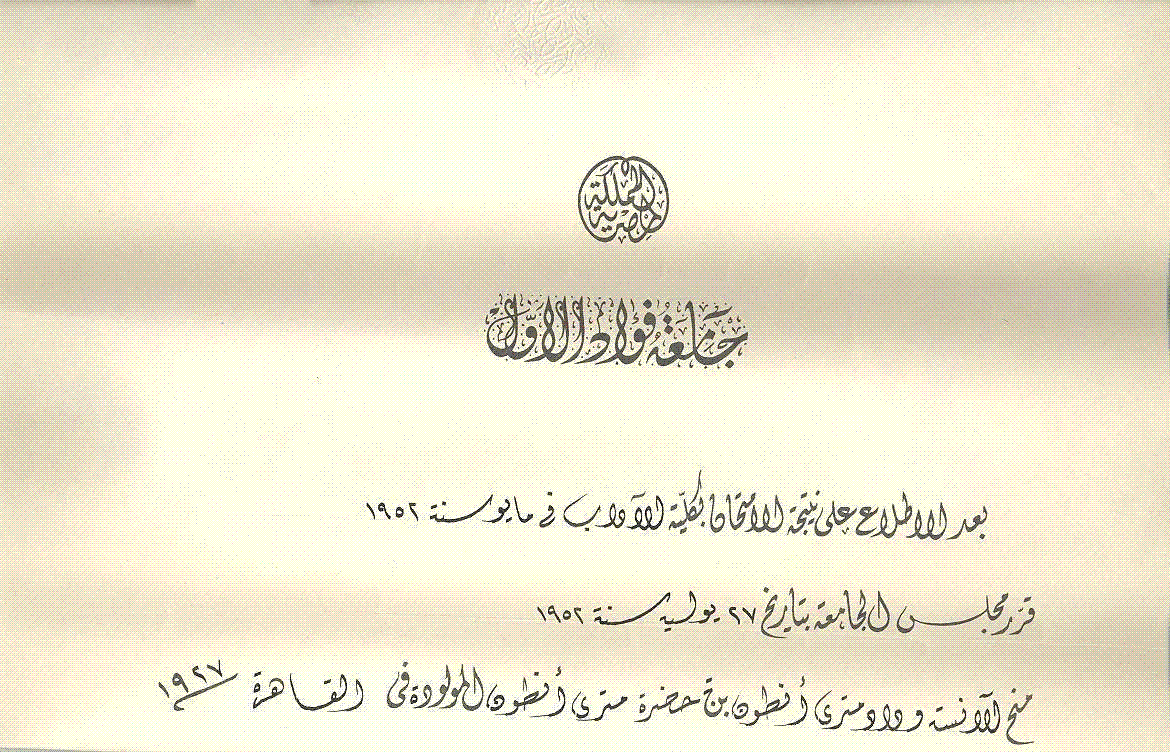 المملكة المصرية
جامعة فؤاد الأوّل
بعد الاطلاع على نتيجة الامتحان بكليّة الآداب فى مايو سنة ١٩٥٢
قرّر مجلس الجامعة بتاريخ ٢٧ يوليه سنة ١٩٥٢
منح الآنسة وداد مترى أنطون بنت حضرة مترى أنطون المولودة فى القاهرة ١٩٢٧